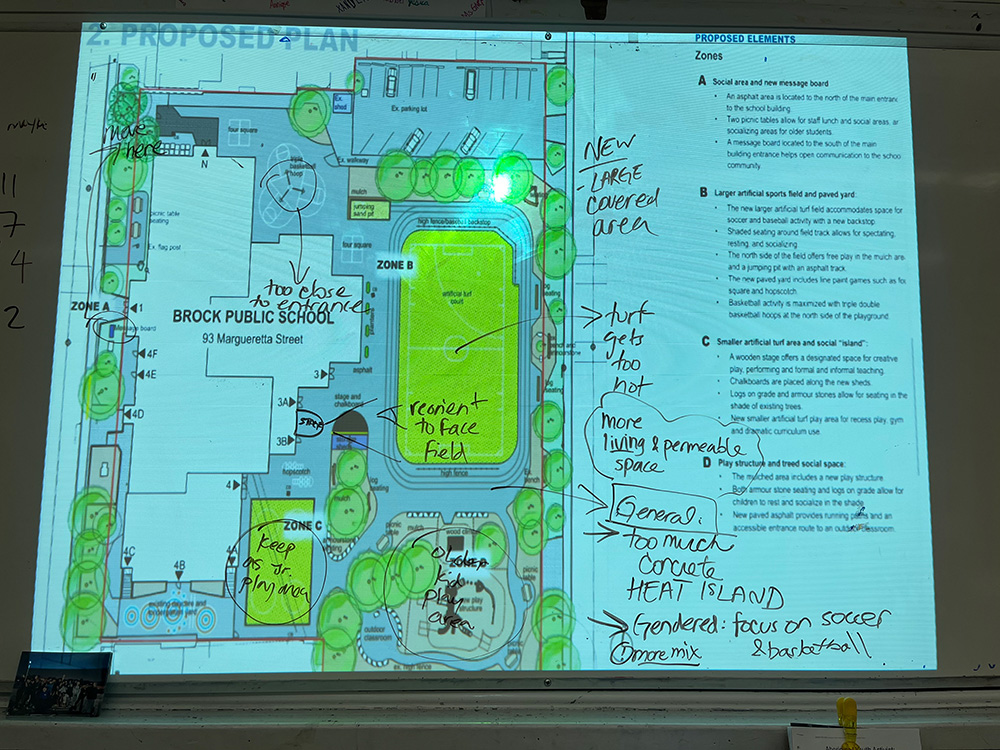 2. PROPOSED PLAN
PROPOSED ELEMENTS
Zones
A Social area and new message board
• An asphalt area is located to the north of the main entrance
to the school building.
• Two picnic tables allow for staff lunch and social areas, ar
socializing areas for older students.
• A message board located to the south of the main
building entrance helps open communication to the schoo
community.
B Larger artificial sports field and paved yard:
• The new larger artificial turf field accommodates space for
soccer and baseball activity with a new backstop
• Shaded seating around field track allows for spectating,
resting, and socializing
• The north side of the field offers free play in the mulch are
and a jumping pit with an asphalt track.
• The new paved yard includes line paint games such as fou
square and hopscotch.
• Basketball activity is maximized with triple double
basketball hoops at the north side of the playground.
C Smaller artificial turf area and social "island":
• A wooden stage offers a designated space for creative
play, performing and formal and informal teaching.
• Chalkboards are placed along the new sheds.
• Logs on grade and armour stones allow for seating in the
shade of existing trees.
• New smaller artificial turf play area for recess play, gym
and dramatic curriculum use.
D Play structure and treed social space:
• The mulched area includes a new play structure
• Both armour stone seating and logs on grade allow for
children to rest and socialize in the shade
• New paved asphalt provides running paths and an
accessible entrance route to an outdoor classroom.
maybe
move
there
11
7
4
2
Ex.
shed
Ex. parking lot
four square
N
triple
basketball
hoop
Ex. walkway
mulch
jumping
sand pit
high fence/baseball backstop
picnic table
seating
Ex. flag post
four square
ZONE B
too close
to entrance
artificial turf
court
ZONE A
1
Message board
BROCK PUBLIC SCHOOL
93 Margueretta Street
4F
4E
4D
3
asphalt
3A
3B
stage and
chalkboard
reorient
to face
field
log
seating
high fence
hopscotch
4
mulch
log
seating
ZONE C
Keep
as Jr.
play area
4C
4B
4A
armourstone
seating
picnic
table
mulch
picnic
table
ZONE D
older
kid
play
area
play
structure
outdoor
classroom
ex. high fence
NEW
- LARGE
covered
area
turf
gets
too
hot
more
living & permeable
space
General.
Too much
Concrete
HEAT ISLAND
Gendered: focus on soccer
& basketball
more mix